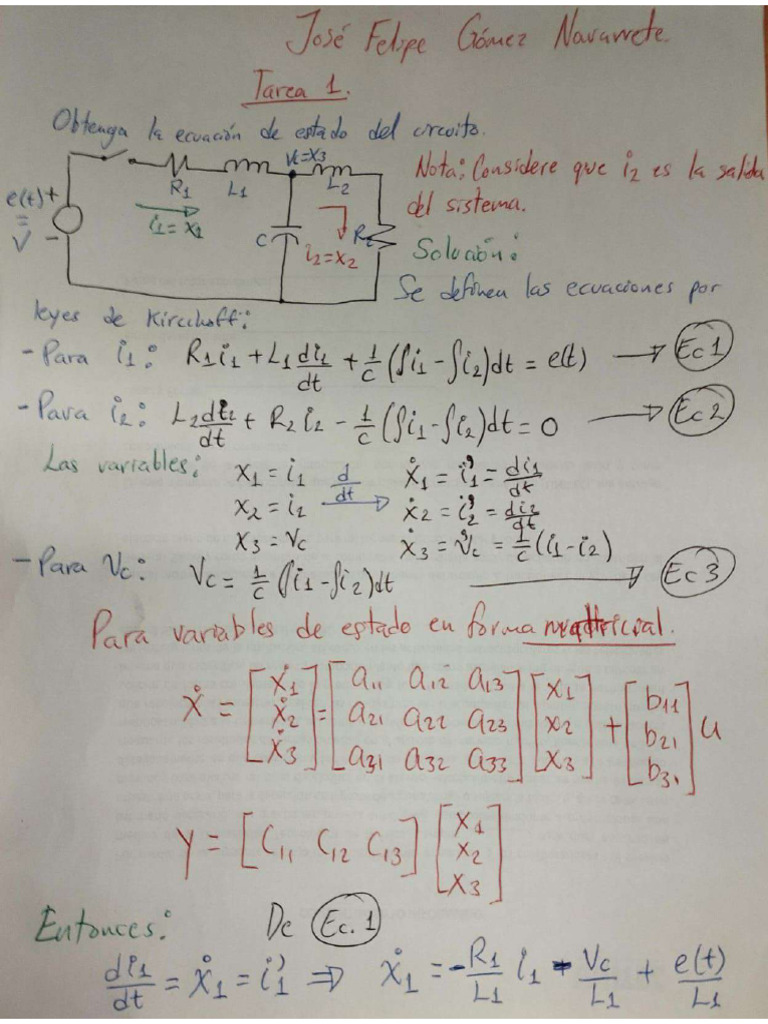 José Felipe Gómez Navarrete.
Tarea 1.
Obtenga la ecuación de estado del circuito.
Vc=x3
R1 L1 L2
e(t) + = V -
i1 = x1
C
R2
i2=x2
Nota: Considere que i2 es la salida
del sistema.
Solución:
Se definen las ecuaciones por
leyes de Kircchoff:
- Para i1: R1i1 + L1 di1/dt + 1/c (∫i1 - ∫i2)dt = e(t) → Ec1
- Para i2: L2 di2/dt + R2 i2 - 1/c (∫i1 - ∫i2)dt = 0 → Ec2
Las variables: x1 = i1 d/dt → ẋ1 = i1' = di1/dt
x2 = i2 ẋ2 = i2' = di2/dt
x3 = Vc ẋ3 = Vc' = 1/c (i1 - i2)
- Para Vc: Vc = 1/c (∫i1 - ∫i2)dt → Ec3
Para variables de estado en forma matricial.
ẋ = [ẋ1 ẋ2 ẋ3] = [a11 a12 a13 a21 a22 a23 a31 a32 a33] [x1 x2 x3] + [b11 b21 b31] u
y = [C11 C12 C13] [x1 x2 x3]
Entonces: De Ec.1
di1/dt = ẋ1 = i1' ⇒ ẋ1 = -R1/L1 i1 - Vc/L1 + e(t)/L1